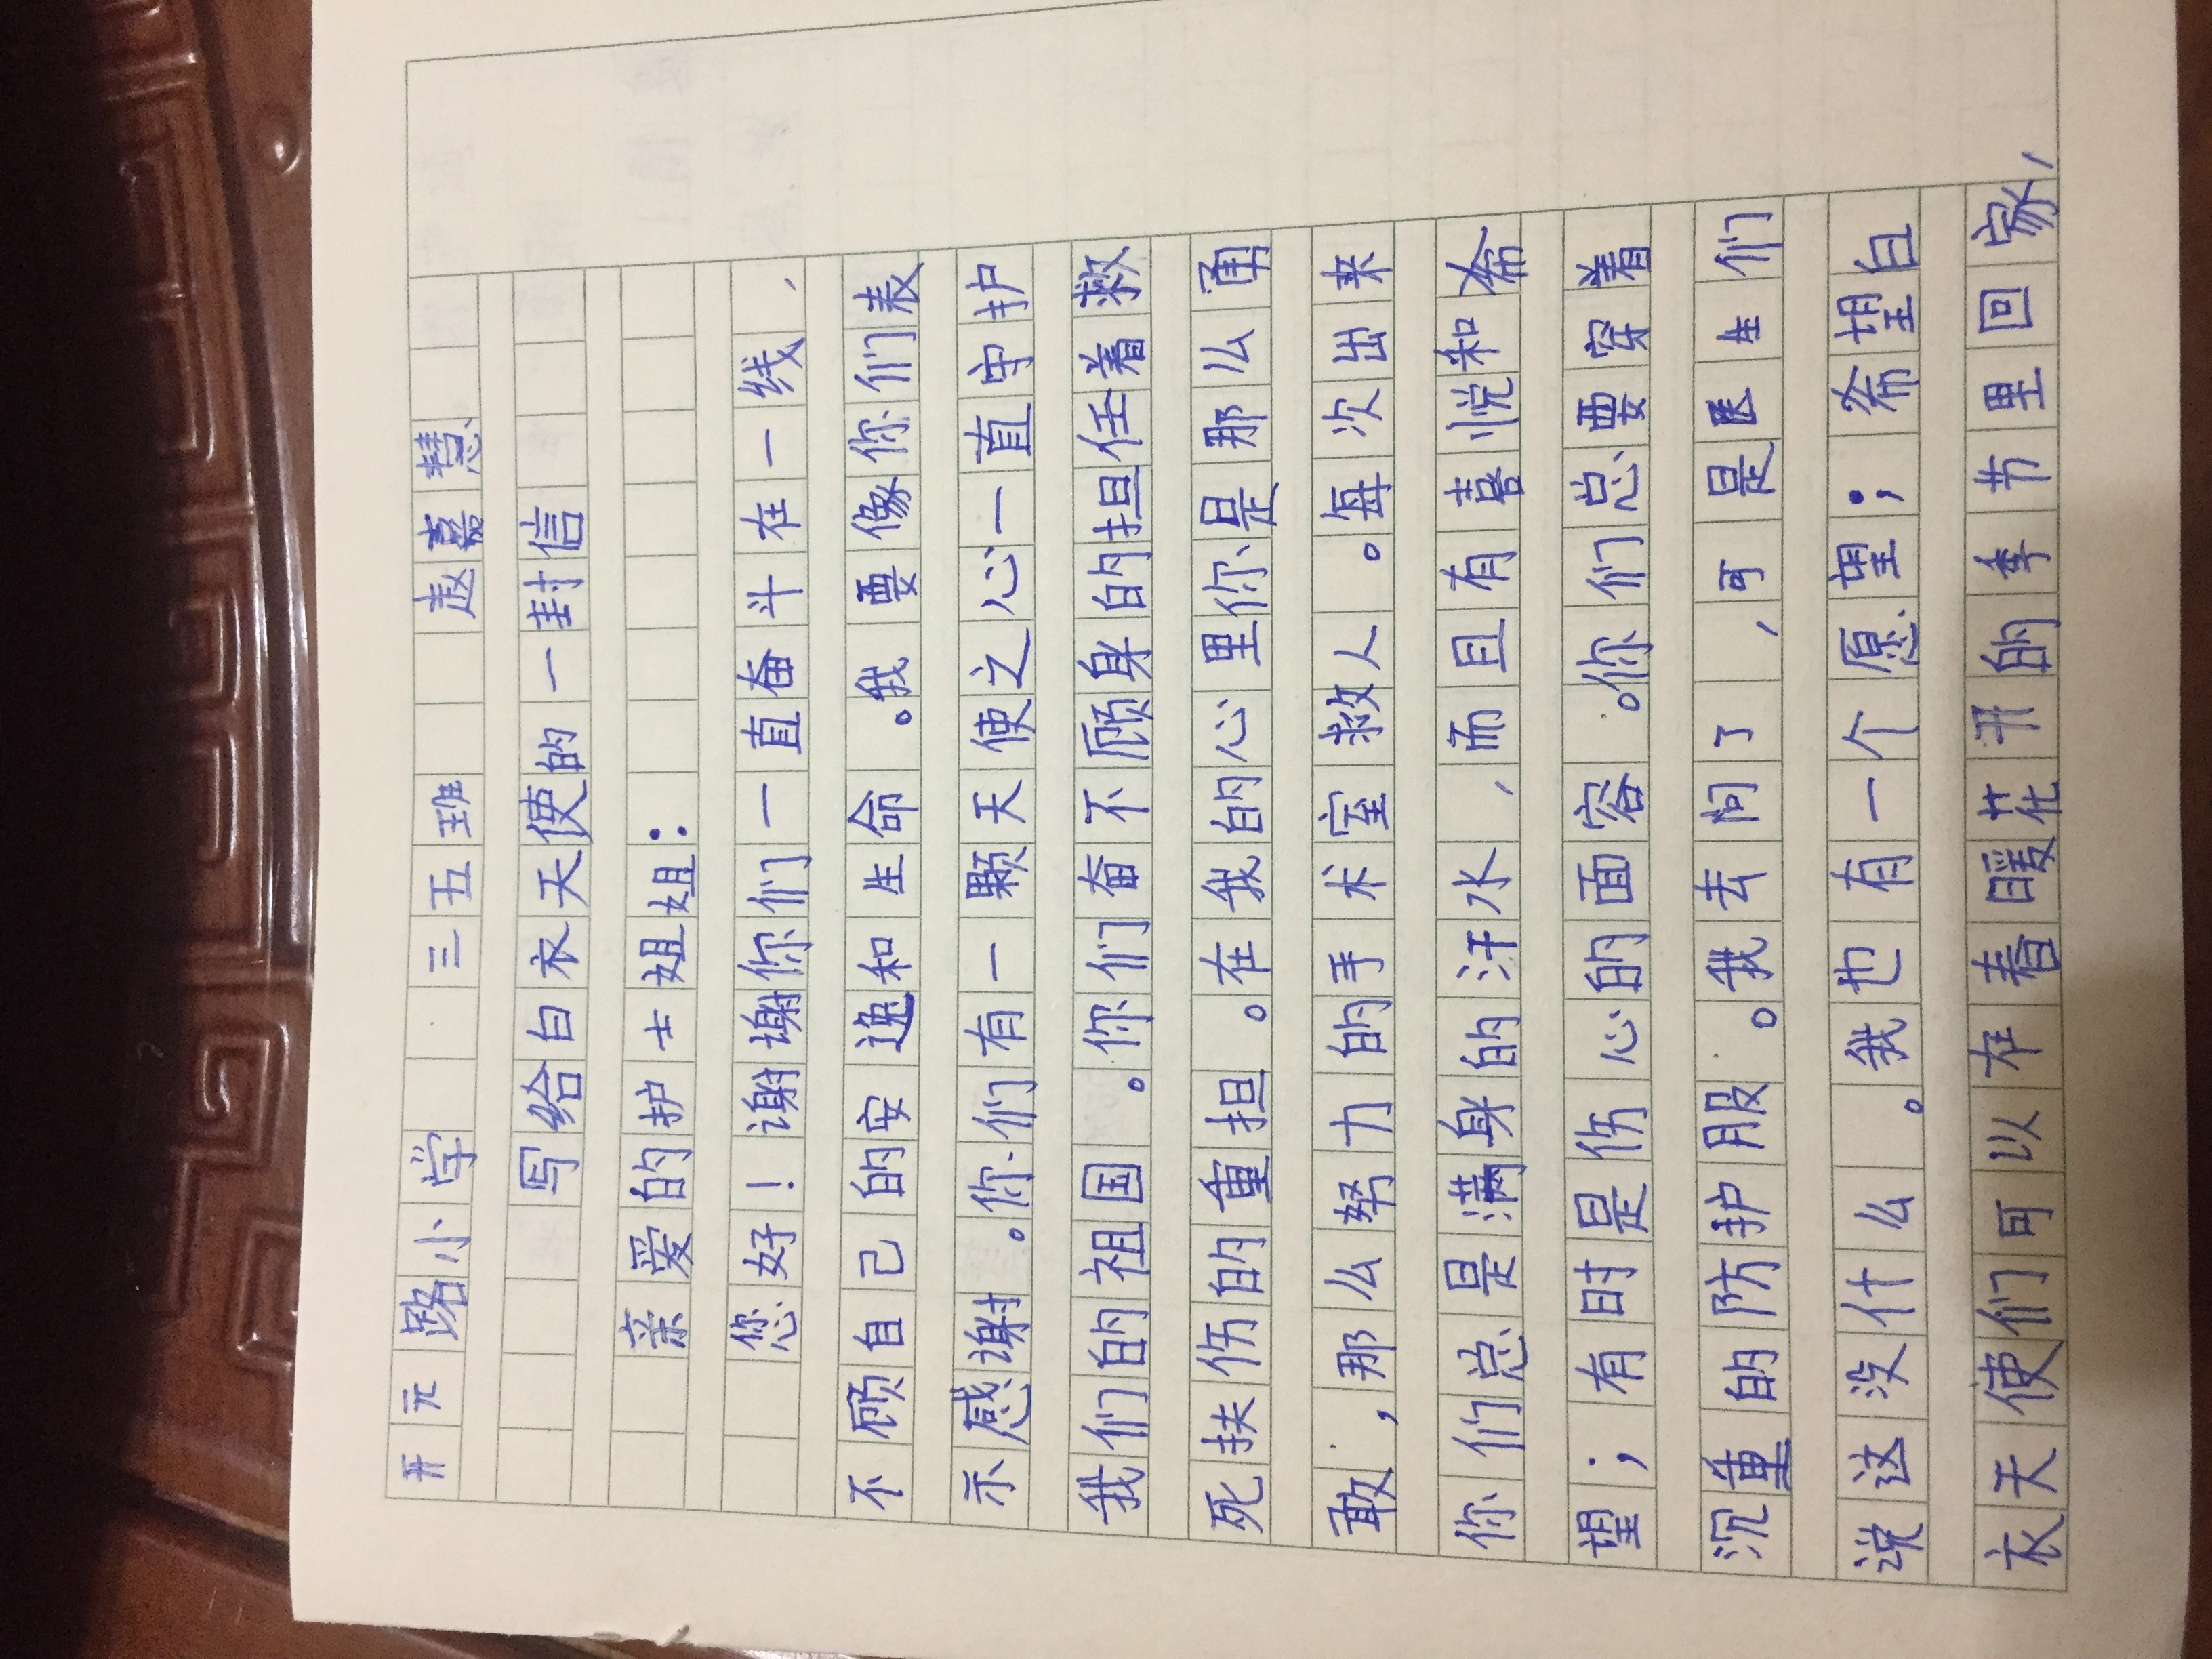 开元路小学 三五班 赵嘉慧
写给白衣天使的一封信
亲爱的护士姐姐：
您好！谢谢你们一直奋斗在一线、
不顾自己的安逸和生命。我要像你们表
示感谢。你们有一颗天使之心一直守护
我们的祖国。你们奋不顾身的担任着救
死扶伤的重担。在我的心里你是那么勇
敢，那么努力的手术室救人。每次出来
你们总是满身的汗水，而且有喜悦和希
望；有时是伤心的面容。你们总要穿着
沉重的防护服。我去问了，可是医生们
说这没什么。我也有一个愿望；希望白
衣天使们可以在春暖花开的季节里回家，